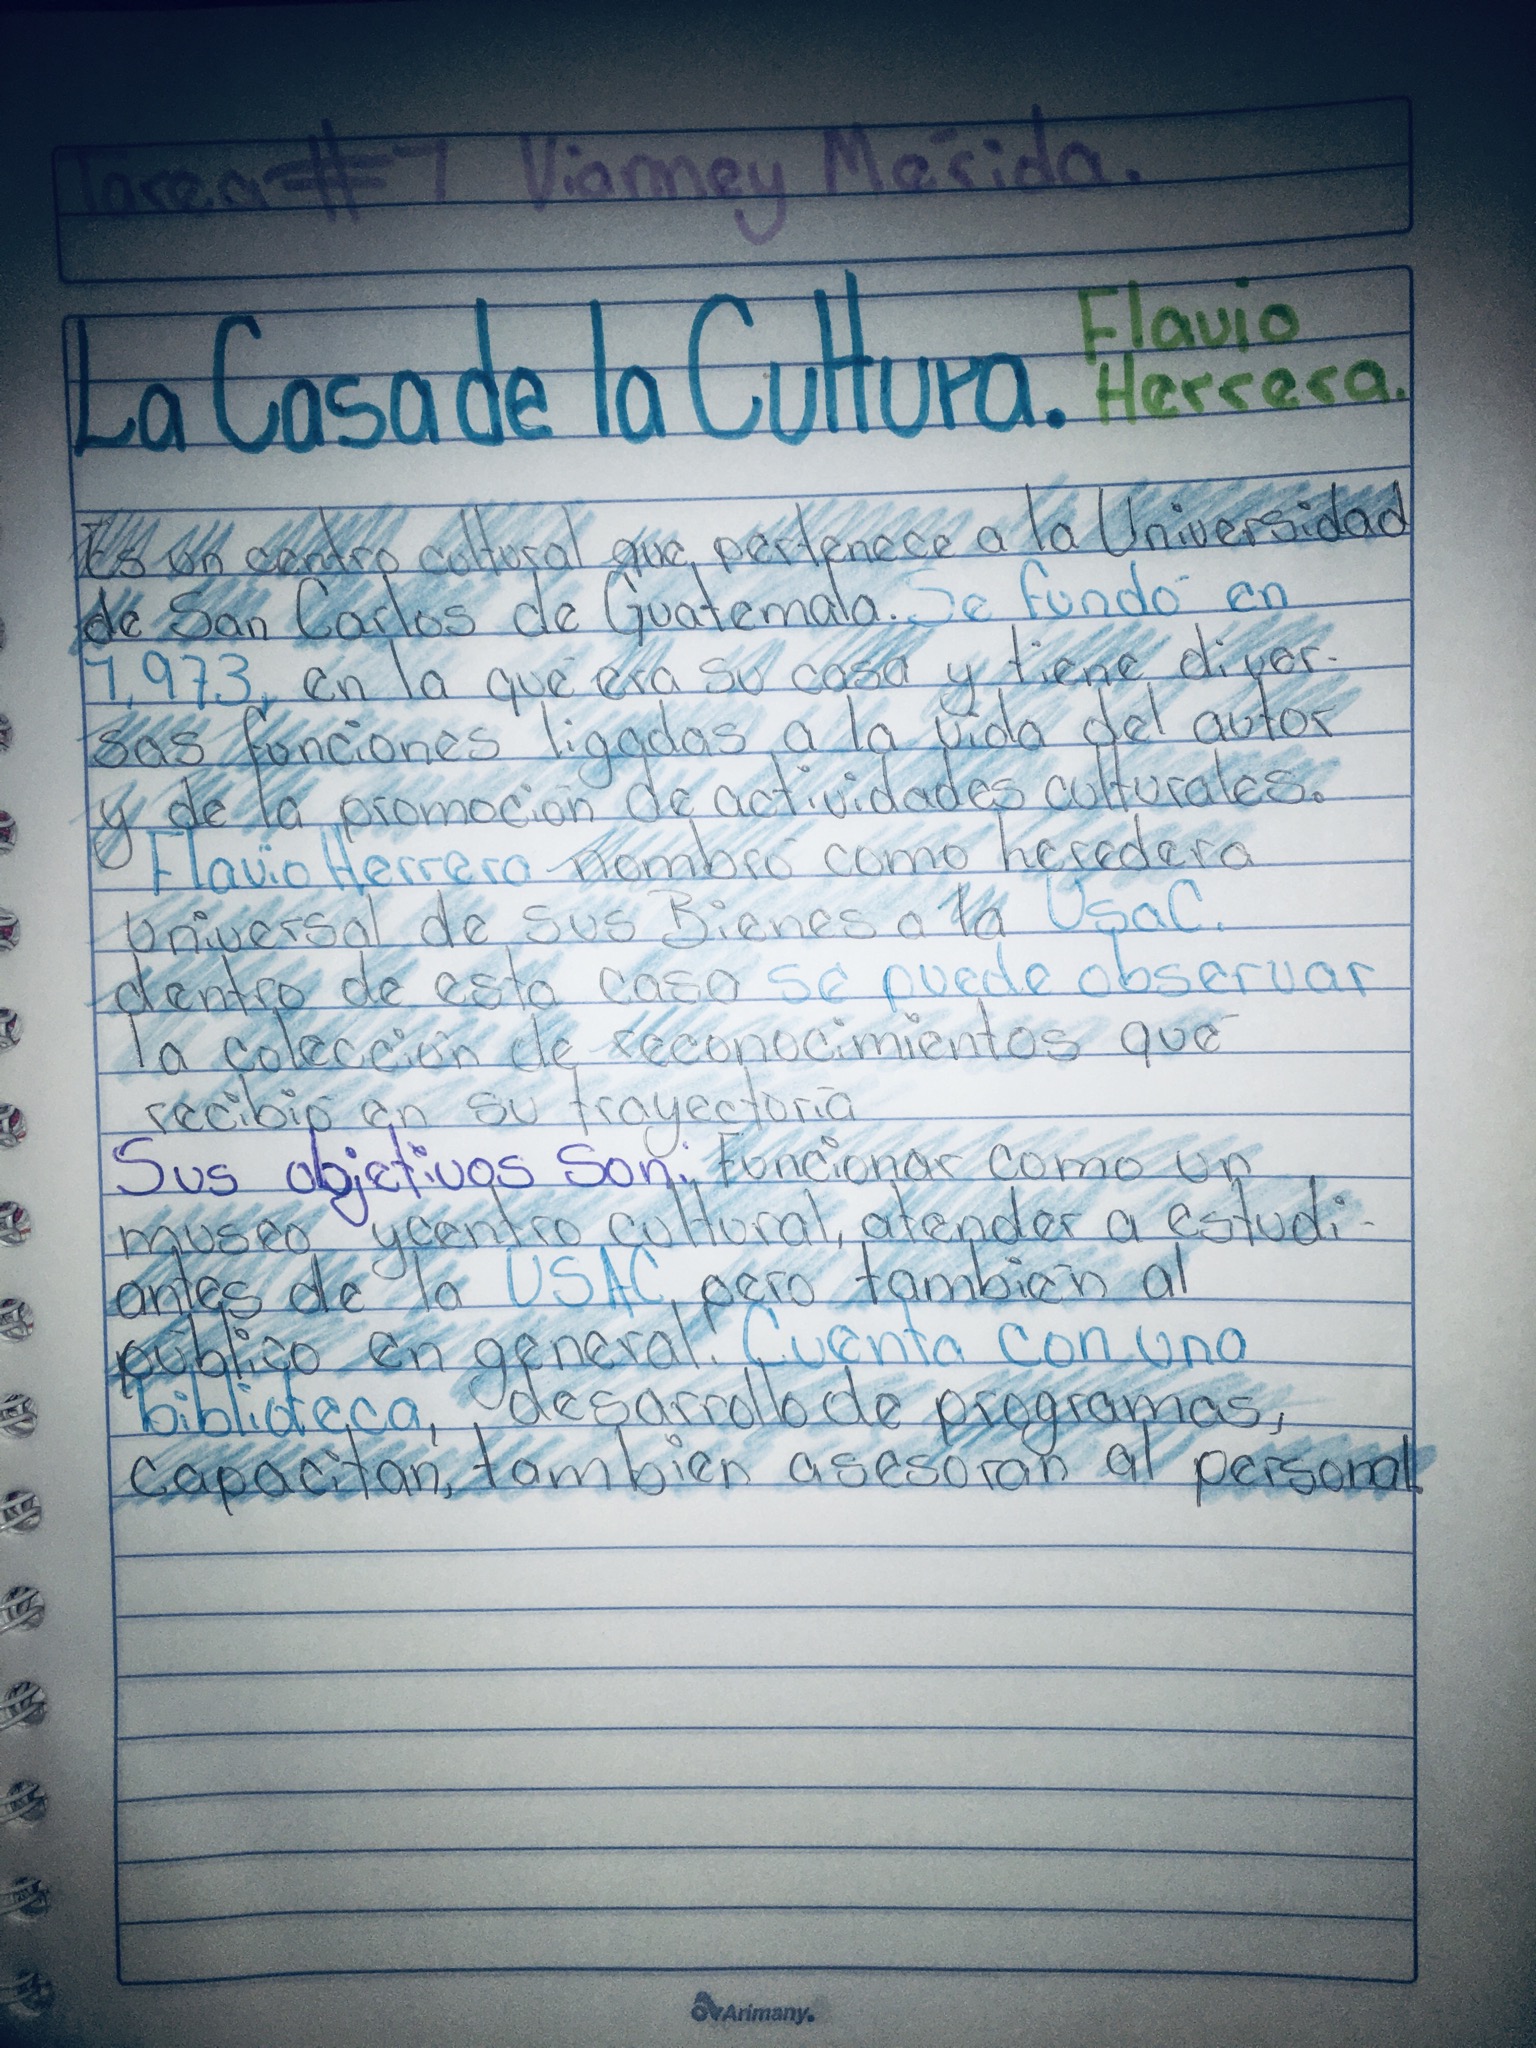 Tarea #7 Vianney Mérida.
La Casa de la Cultura. Flavio Herrera.
Es un centro cultural que pertenece a la Universidad
de San Carlos de Guatemala. Se fundó en
1,973, en la que era su casa y tiene diver-
sas funciones ligadas a la vida del autor
y de la promoción de actividades culturales.
Flavio Herrera nombró como heredera
universal de sus Bienes a la Usac.
dentro de esta casa se puede observar
la colección de reconocimientos que
recibió en su trayectoria
Sus objetivos son: Funcionar como un
museo y centro cultural, atender a estudi-
antes de la USAC, pero también al
público en general. Cuenta con una
biblioteca, desarrollo de programas,
capacitan, tambien asesoran al personal.
Arimany.